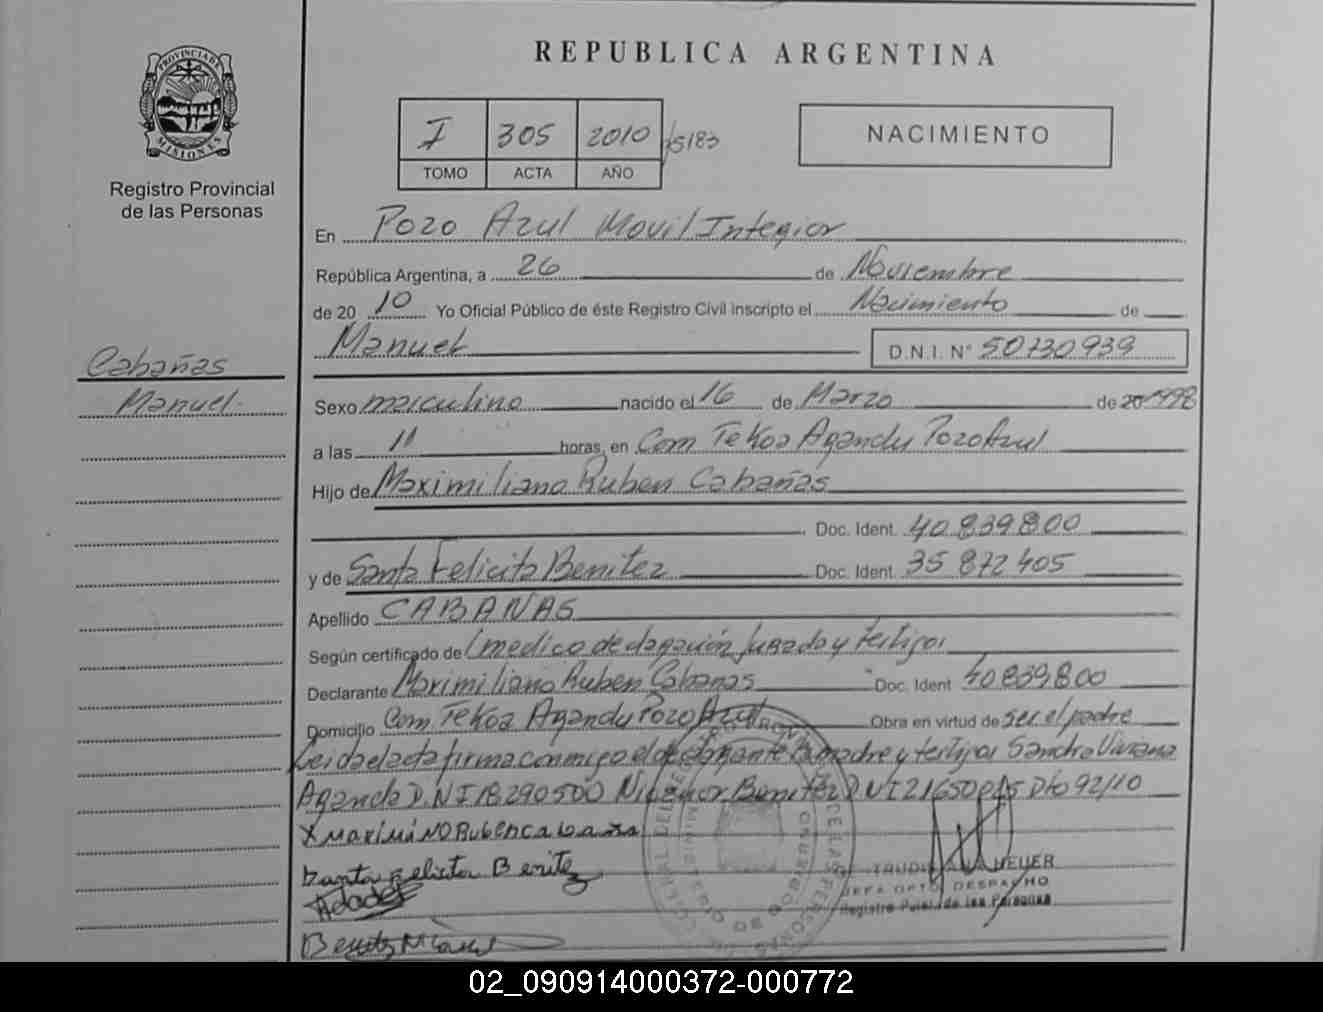 REPUBLICA ARGENTINA
PROVINCIA DE
MISIONES
Registro Provincial
de las Personas
I 305 2010 /5183
TOMO ACTA AÑO
NACIMIENTO
En Pozo Azul Movil Integior
República Argentina, a 26 de Noviembre
de 2010 Yo Oficial Público de éste Registro Civil inscripto el Nacimiento de
Manuel D.N.I. Nº 50730939
Cabañas
Manuel.
Sexo masculino nacido el 16 de Marzo de 20 1998
a las 11 horas, en Com Tekoa Agandu Pozo Azul
Hijo de Maximiliano Ruben Cabañas
Doc. Ident. 40.839.800
y de Santa Felicita Benitez Doc. Ident. 35 872 405
Apellido CABAÑAS
Según certificado de medico declaración Jurada y testigos
Declarante Maximiliano Ruben Cabanas Doc. Ident 40839800
Domicilio Com Tekoa Agandu Pozo Azul Obra en virtud de ser el padre
Leida el acta firma conmigo el declarante la madre y testigos Sandra Viviana
Aganda D.N.I 18290500 Benitez D.N.I 21650 Dto 92/10
X MaxiMiNO RubenCabañas
Santa Felicita Benitez
Benitez
HEUER
JEFA DPTO DESPACHO
Registro de las Personas
02_090914000372-000772